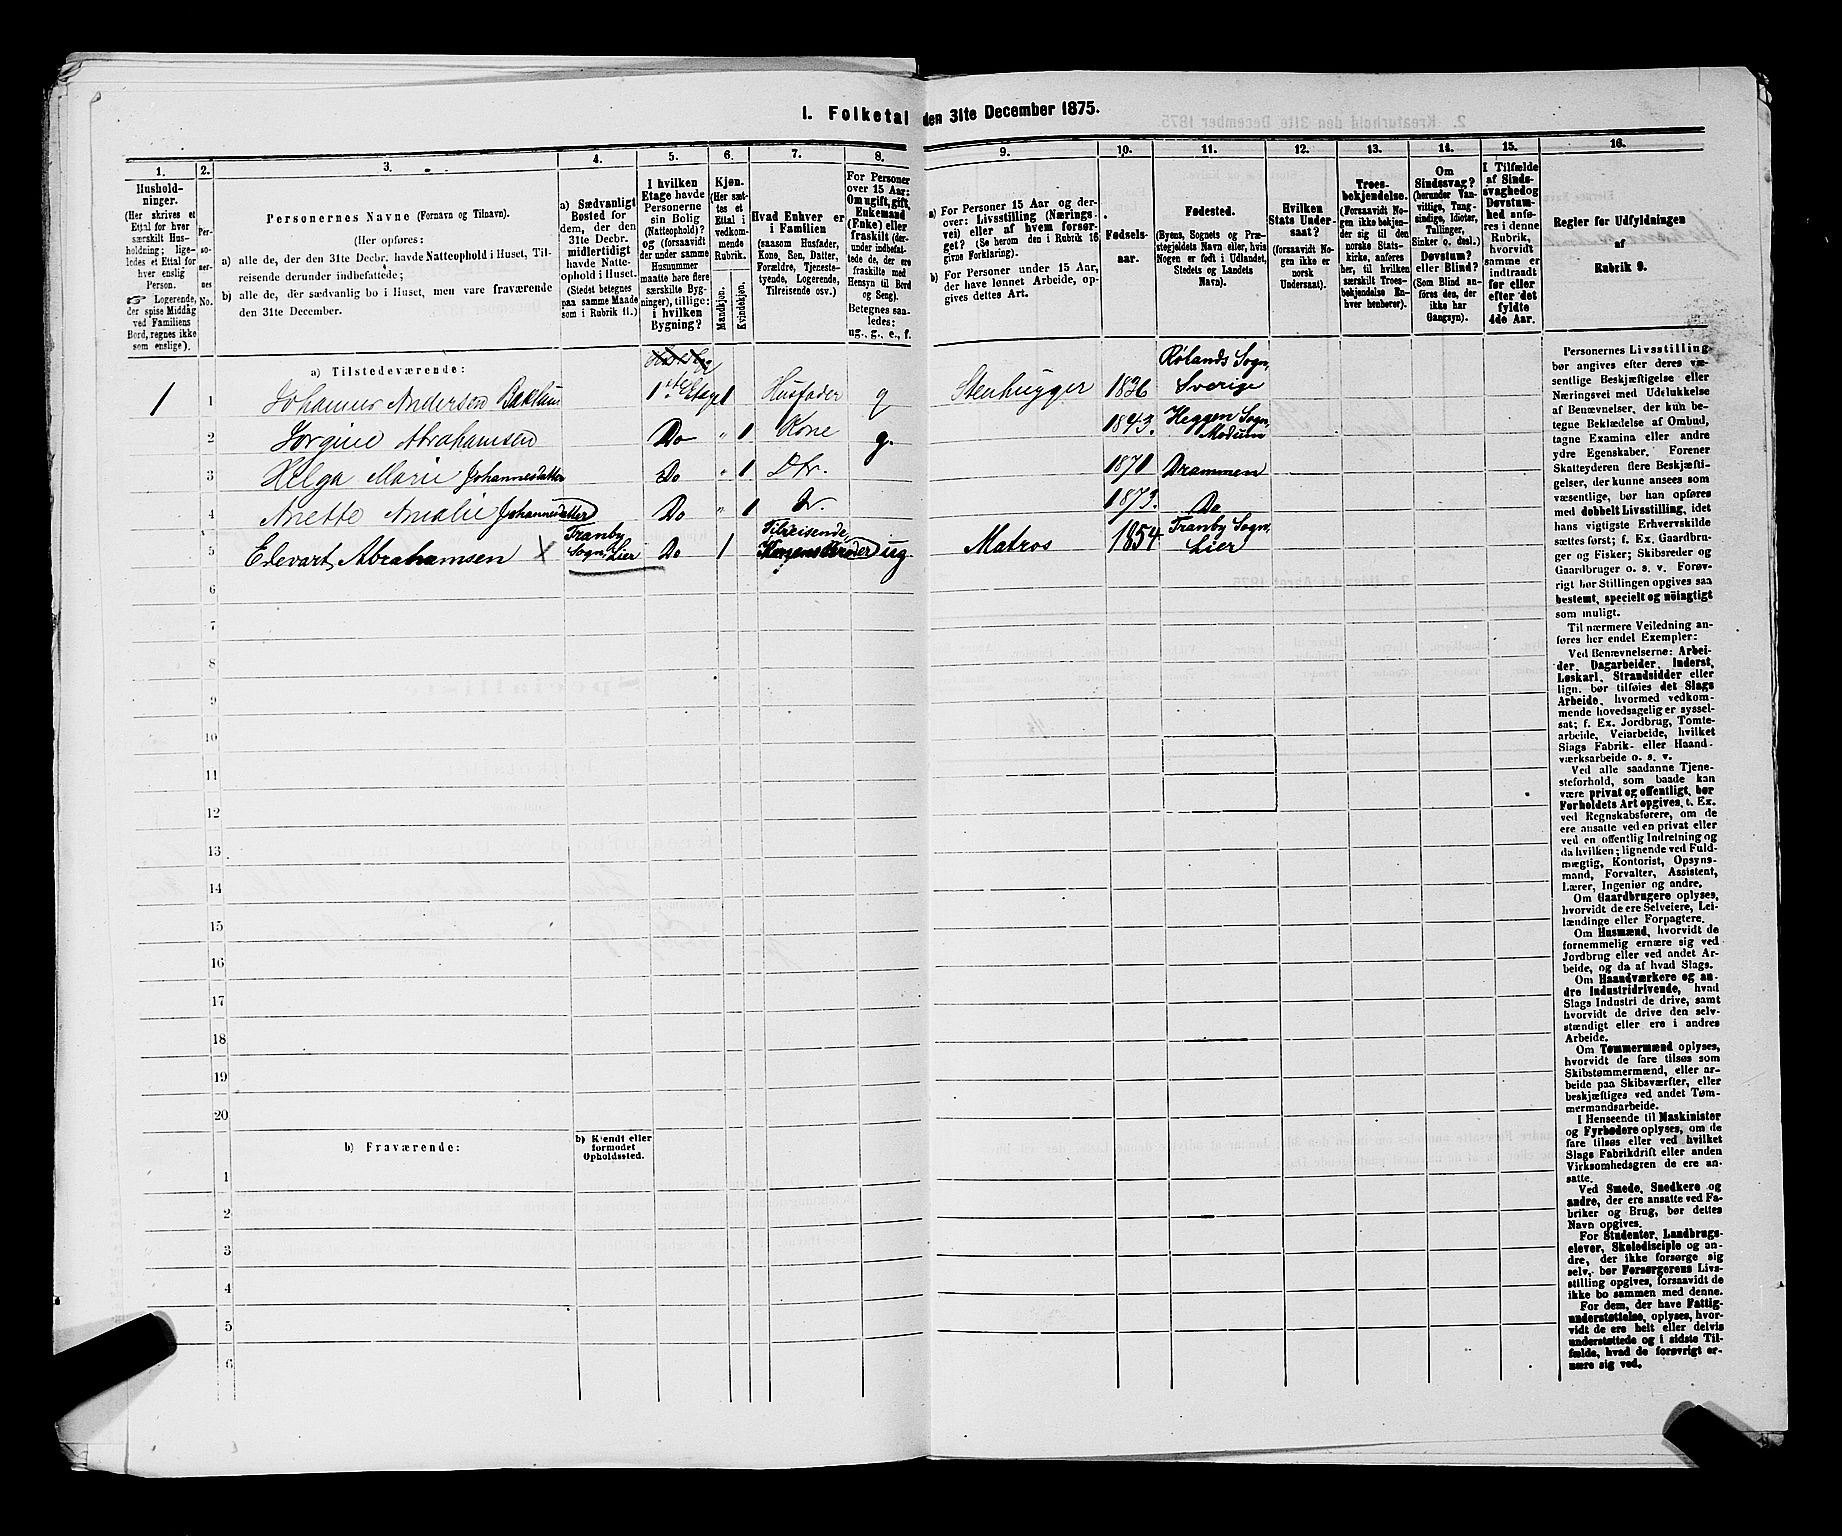 1. Folketal den 31te December 1875.
1.
Hushold-
ninger.
(Her skrives et
Ettal for hver
særskilt Hus-
holdning; lige-
ledes et Ettal for
hver enslig
Person.
☞ Logerende,
der spise Middag
ved Familiens
Bord, regnes ikke
som enslige).
2.
Per-
so-
ner-
nes
No.
3.
Personernes Navne (Fornavn og Tilnavn).
(Her opføres:
a) alle de, der den 31te Decbr. havde Natteophold i Huset, Til-
reisende derunder indbefattede;
b) alle de, der sædvanlig bo i Huset, men vare fraværende
den 31te December.
4.
a) Sædvanligt
Bosted for
dem, der den
31te Decbr.
midlertidigt
havde Natte-
ophold i Huset.
(Stedet betegnes
paa samme Maade
som i Rubrik 11.)
5.
I hvilken
Etage havde
Personerne
sin Bolig
(Natteophold)?
og (forsaavidt
der under samme
Husnummer
maatte høre flere
særskilte Byg-
ninger), tillige:
i hvilken
Bygning?
6.
Kjøn.
(Her sæt-
tes et
Ettal i
vedkom-
mende
Rubrik.
Mandkjøn.
Kvindekjøn.
7.
Hvad Enhver er
i Familien
(saasom Husfader,
Kone, Søn, Datter,
Forældre, Tjeneste-
tyende, Logerende,
Tilreisende osv.)
8.
For Personer
over 15 Aar:
Om ugift, gift,
Enkemand
(Enke) eller
fraskilt (der-
under indbefat-
tede de, der ere
fraskilte med
Hensyn til Bord
og Seng).
Betegnes saa-
ledes:
ug., g., e., f.
9.
a) For Personer 15 Aar og der-
over: Livsstilling (Nærings-
vei) eller af hvem forsør-
get? (Se herom den i Rubrik 16
givne Forklaring).
b) For Personer under 15 Aar,
der have lønnet Arbeide, op-
gives dettes Art.
10.
Fødsels-
aar.
11.
Fødested.
(Byens, Sognets og Præ-
stegjeldets Navn eller, hvis
Nogen er født i Udlandet,
Stedets og Landets
Navn).
12.
Hvilken
Stats Under-
saat?
(forsaavidt No-
gen ikke er
norsk
Undersaat).
13.
Troes-
bekjendelse.
(Forsaavidt No-
gen ikke bekjen-
der sig til den
norske Stats-
kirke, anføres
her, til hvilken
særskilt Troes-
bekjendelse En-
hver henhører).
14.
Om
Sindssvag?
(herunder Van-
vittige, Tung-
sindige, Idioter,
Tullinger,
Sinker o. desl.)
Døvstum?
eller Blind?
(Som Blind an-
føres den, der
ikke har
Gangsyn).
15.
I Tilfælde
af Sinds-
svaghed og
Døvstum-
hed anfø-
res i denne
Rubrik,
hvorvidt
samme er
indtraadt
før eller
efter det
fyldte
4de Aar.
16.
Regler for Udfyldningen
af
Rubrik 9.
a) Tilstedeværende:
1 1 Johannes Andersen Baklun 1ste Etage 1 Husfader g Stenhugger 1836 Rølands Sogn,
Sverige
2 Jorgine Abrahamsen Do „ 1 Kone g. 1843. Heggen Sogn,
Modum
3 Helga Marie Johannesdatter Do „ 1 Dtr. 1871 Drammen
4 Anette Amalie Johannesdatter Do „ 1 D. 1873. Do
5 Edevart Abrahamsen × Tranby
Sogn, Lier Do 1 Tilreisende,
Konens Broder ug Matros 1854 Tranby Sogn,
Lier
6
7
8
9
10
11
12
13
14
15
16
17
18
19
20
b) Fraværende:
b) Kjendt eller
formodet
Opholdssted.
1
2
3
4
5
6
Personernes Livsstilling
bør angives efter deres væ-
sentlige Beskjæftigelse eller
Næringsvei med Udelukkelse
af Benævnelser, der kun be-
tegne Beklædelse af Ombud,
tagne Examina eller andre
ydre Egenskaber. Forener
Skatteyderen flere Beskjæfti-
gelser, der kunne ansees som
væsentlige, bør han opføres
med dobbelt Livsstilling, idet
hans vigtigste Erhvervskilde
sættes først; f. Ex. Gaardbru-
ger og Fisker; Skibsreder og
Gaardbruger o. s. v. Forøv-
rigt bør Stillingen opgives saa
bestemt, specielt og nøiagtigt
som muligt.
Til nærmere Veiledning an-
føres her endel Exempler:
Ved Benævnelserne: Arbei-
der, Dagarbeider, Inderst,
Løskarl, Strandsidder eller
lign. bør tilføies det Slags
Arbeide, hvormed vedkom-
mende hovedsagelig er syssel-
sat; f. Ex. Jordbrug, Tomte-
arbeide, Veiarbeide, hvilket
Slags Fabrik- eller Haand-
værksarbeide o. s. v.
Ved alle saadanne Tjene-
steforhold, som baade kan
være privat og offentligt, bør
Forholdets Art opgives, t. Ex.
ved Regnskabsførere, om de
ere ansatte ved en privat eller
ved en offentlig Indretning og
da hvilken; lignende ved Fuld-
mægtig, Kontorist, Opsyns-
mand, Forvalter, Assistent,
Lærer, Ingeniør og andre.
Om Gaardbrugere oplyses,
hvorvidt de ere Selveiere, Lei-
lændinge eller Forpagtere.
Om Husmænd, hvorvidt de
fornemmelig ernære sig ved
Jordbrug eller ved andet Ar-
beide, og da af hvad Slags.
Om Haandværkere og an-
dre Industridrivende, hvad
Slags Industri de drive, samt
hvorvidt de drive den selv-
stændigt eller ere i andres
Arbeide.
Om Tømmermænd oplyses,
hvorvidt de fare tilsøs som
Skibstømmermænd, eller ar-
beide paa Skibsværfter, eller
beskjæftiges ved andet Tøm-
mermandsarbeide.
I Henseende til Maskinister
og Fyrbødere oplyses, om de
fare tilsøs eller ved hvilket
Slags Fabrikdrift eller anden
Virksomhedsgren de ere an-
satte.
Ved Smede, Snedkere og
andre, der ere ansatte ved Fa-
briker og Brug, bør dettes
Navn opgives.
For Studenter, Landbrugs-
elever, Skoledisciple og an-
dre, der ikke forsørge sig
selv, bør Forsørgerens Livs-
stilling opgives, forsaavidt de
ikke bo sammen med denne.
For dem, der have Fattig-
understøttelse, oplyses, hvor-
vidt de ere helt eller delvis
understøttede og i sidste Til-
fælde, hvad de forøvrigt er-
nære sig ved.